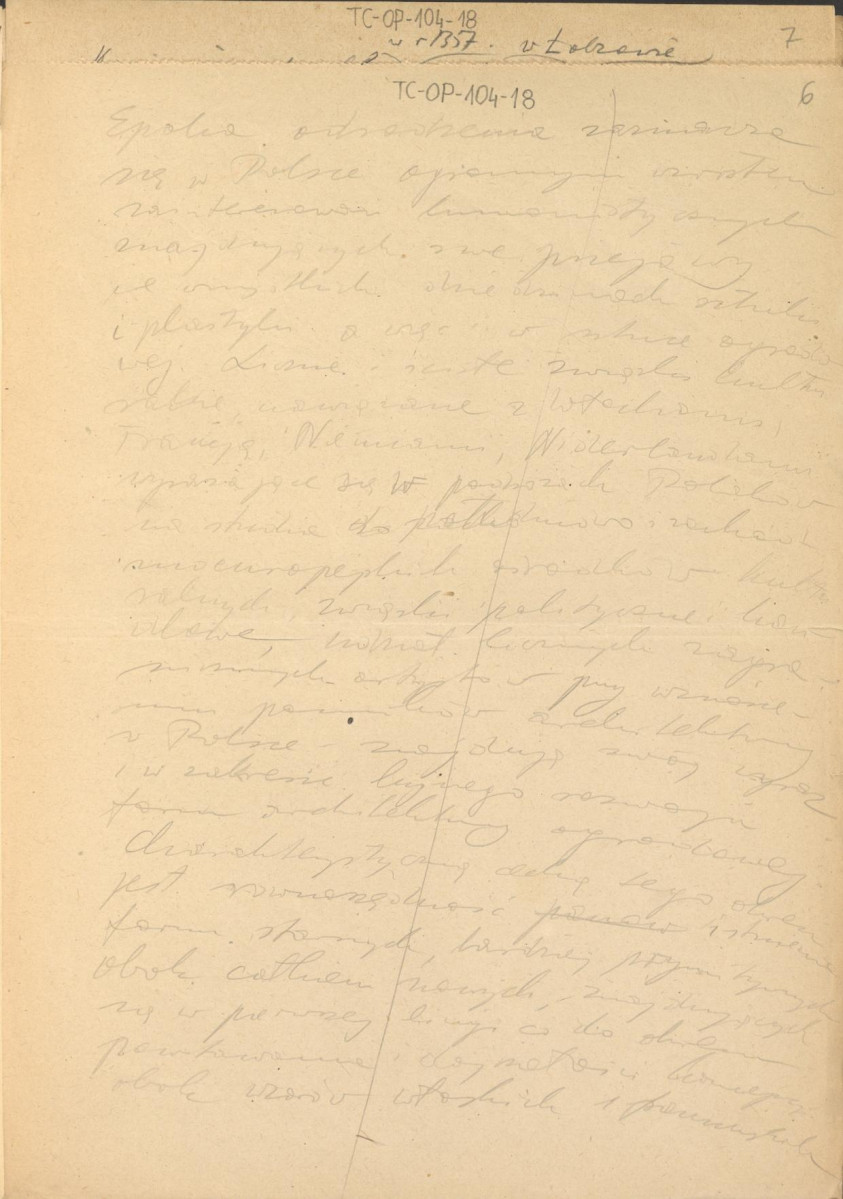 TC-OP-104-18
7
w r 1357. w Łobzowie
TC-OP-104-18
6
Epoka odrodzenia zaznacza
się w Polsce ogromnym wzrostem
zainteresowań humanistycznych
znajdujących swe przejawy
we wszystkich dziedzinach sztuki
i plastyki a więc i w sztuce ogrodo
wej. Liczne i ścisłe związki kultu
ralne, nawiązane z Włochami,
Francją, Niemcami, Niderlandami
wyrażające się w podróżach Polaków
na studia do południowo i zachod
nioeuropejskich ośrodków kultu
ralnych, związki polityczne i han
dlowe, udział licznych zapro-
szonych artystów przy wznosze-
niu pomników architektury
w Polsce znajdują swój wyraz
i w zakresie bujnego rozwoju
form architektury ogrodowej.
Charakterystyczną cechą tego okresu
jest równorzędność istnienia
form starych, bardziej prymitywnych
obok całkiem nowych, znajdujących
się w pierwszej linji co do okresu
powstawania i dojrzałości koncepcji
obok wzorów włoskich i francuskich